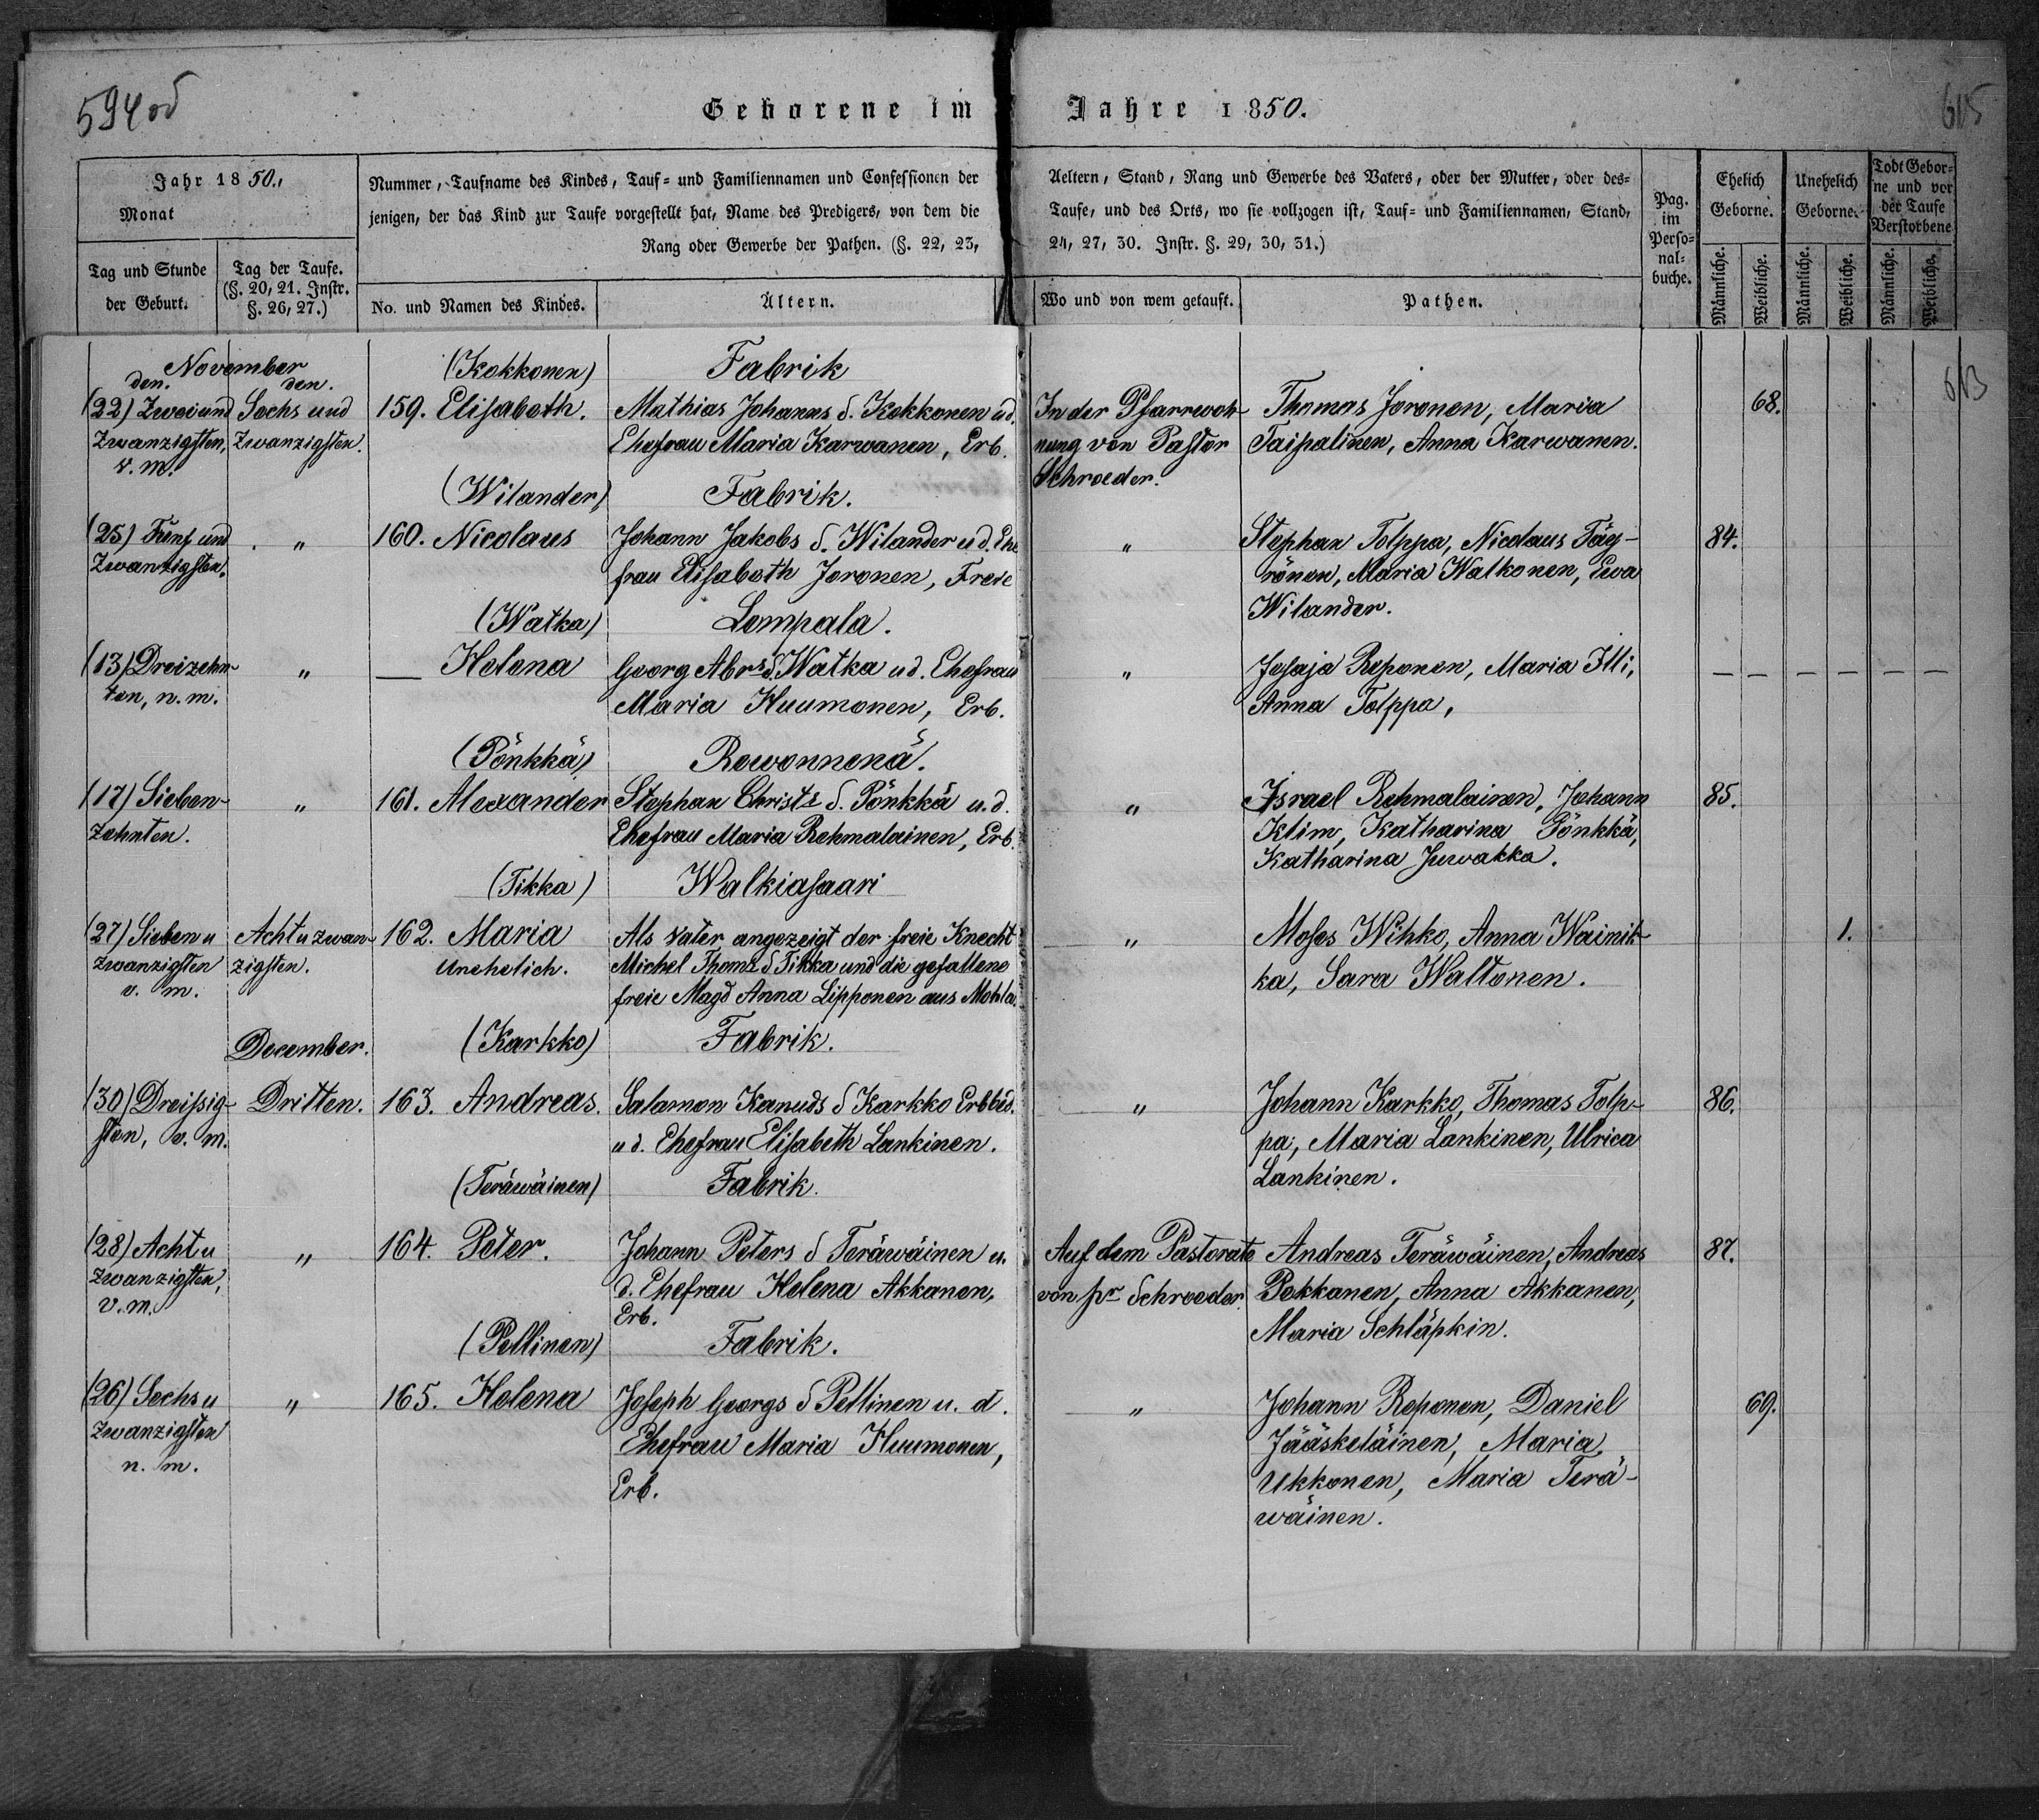 594 od
615
Geborene im Jahre 1850.
Jahr 1850.,
Monat
Tag und Stunde der Geburt.
Tag der Taufe. (§. 20, 21. Instr. §. 26, 27.)
Nummer, Taufname des Kindes, Tauf- und Familiennamen und Confessionen der Aeltern, Stand, Rang und Gewerbe des Vaters, oder der Mutter, oder des-
jenigen, der das Kind zur Taufe vorgestellt hat, Name des Predigers, von dem die Taufe, und des Orts, wo sie vollzogen ist, Tauf- und Familiennamen, Stand,
Rang oder Gewerbe der Pathen. (§. 22, 23, 24, 27, 30. Instr. §. 29, 30, 31.)
No. und Namen des Kindes.
Ältern.
Wo und von wem getauft.
Pathen.
Pag. im Perso-nal-buche.
Ehelich Geborne.
Unehelich Geborne.
Todt Gebor-ne und vor der Taufe Verstorbene
Männliche. Weibliche. Männliche. Weibliche. Männliche. Weibliche.
613
November
den. den.
(22) Zwei und
Zwanzigsten,
v. m.
Sechs und
Zwanzigsten.
(Kokkonen)
159. Elisabeth.
Fabrik
Mathias Johanns S. Kokkonen u d.
Ehefrau Maria Karwanen, Erb.
In der Pfarrwoh-
nung von Pastor
Schroeder.
Thomas Joronen, Maria
Taipalinen, Anna Karwanen.
68.
(25) Fünf und
Zwanzigsten.
"
(Wilander)
160. Nicolaus
Fabrik.
Johann Jakobs S. Wilander u d. Ehe
frau Elisabeth Joronen, Freie
"
Stephan Tolppa, Nicolaus Täy-
rönen, Maria Walkonen, Ewa
Wilander.
84.
(13) Dreizehn-
ten, n. m.
"
(Watka)
— Helena
Lempala.
Georg Abrs S. Watka u d. Ehefrau
Maria Huumonen, Erb.
"
Jesaja Reponen, Maria Illi,
Anna Tolppa,
— — — — — —
(17) Sieben-
zehnten.
"
(Pönkkä)
161. Alexander
Rowonnenä.
Stephan Christs S. Pönkkä u. d.
Ehefrau Maria Rehmalainen, Erb.
"
Israel Rehmalainen, Johann
Klim, Katharina Pönkkä,
Katharina Juwakka.
85.
(27) Sieben u
zwanzigsten
v. m.
Acht u zwan-
zigsten.
(Tikka)
162. Maria
Unehelich.
Walkiasaari
Als Vater angezeigt der freie Knecht
Michel Thoms S Tikka und die gefallene
freie Magd Anna Lipponen aus Mohla.
"
Moses Wihko, Anna Wainik-
ka, Sara Waltonen.
1.
(30) Dreissig-
sten, v. m.
December.
Dritten.
(Karkko)
163. Andreas.
Fabrik.
Salamon Kanuds S Karkko Erbbed.
u d. Ehefrau Elisabeth Lankinen.
"
Johann Karkko, Thomas Tolp-
pa, Maria Lankinen, Ulrica
Lankinen.
86.
(28) Acht u
zwanzigsten,
v. m.
"
(Teräwäinen)
164. Peter.
Fabrik.
Johann Peters S Teräwäinen u.
d. Ehefrau Helena Akkanen,
Erb.
Auf dem Pastorate
von pr Schroeder.
Andreas Teräwäinen, Andreas
Pekkanen, Anna Akkanen,
Maria Schläpkin.
87.
(26) Sechs u
zwanzigsten
n. m.
"
(Pellinen)
165. Helena
Fabrik.
Joseph Georgs S Pellinen u. d.
Ehefrau Maria Huumonen,
Erb.
"
Johann Reponen, Daniel
Jääskeläinen, Maria
Ukkonen, Maria Terä-
wäinen.
69.